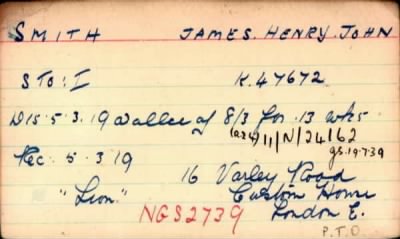 SMITH JAMES. HENRY. JOHN
STO: I K. 47672
Dis. 5. 3. 19 of 8/3 for 13 wks.
11/N/24162
Rec. 5. 3 19 gs. 19.7.39
16 Varley Road
"Lion" Custom House
NGS2739 London E.
P.T.O